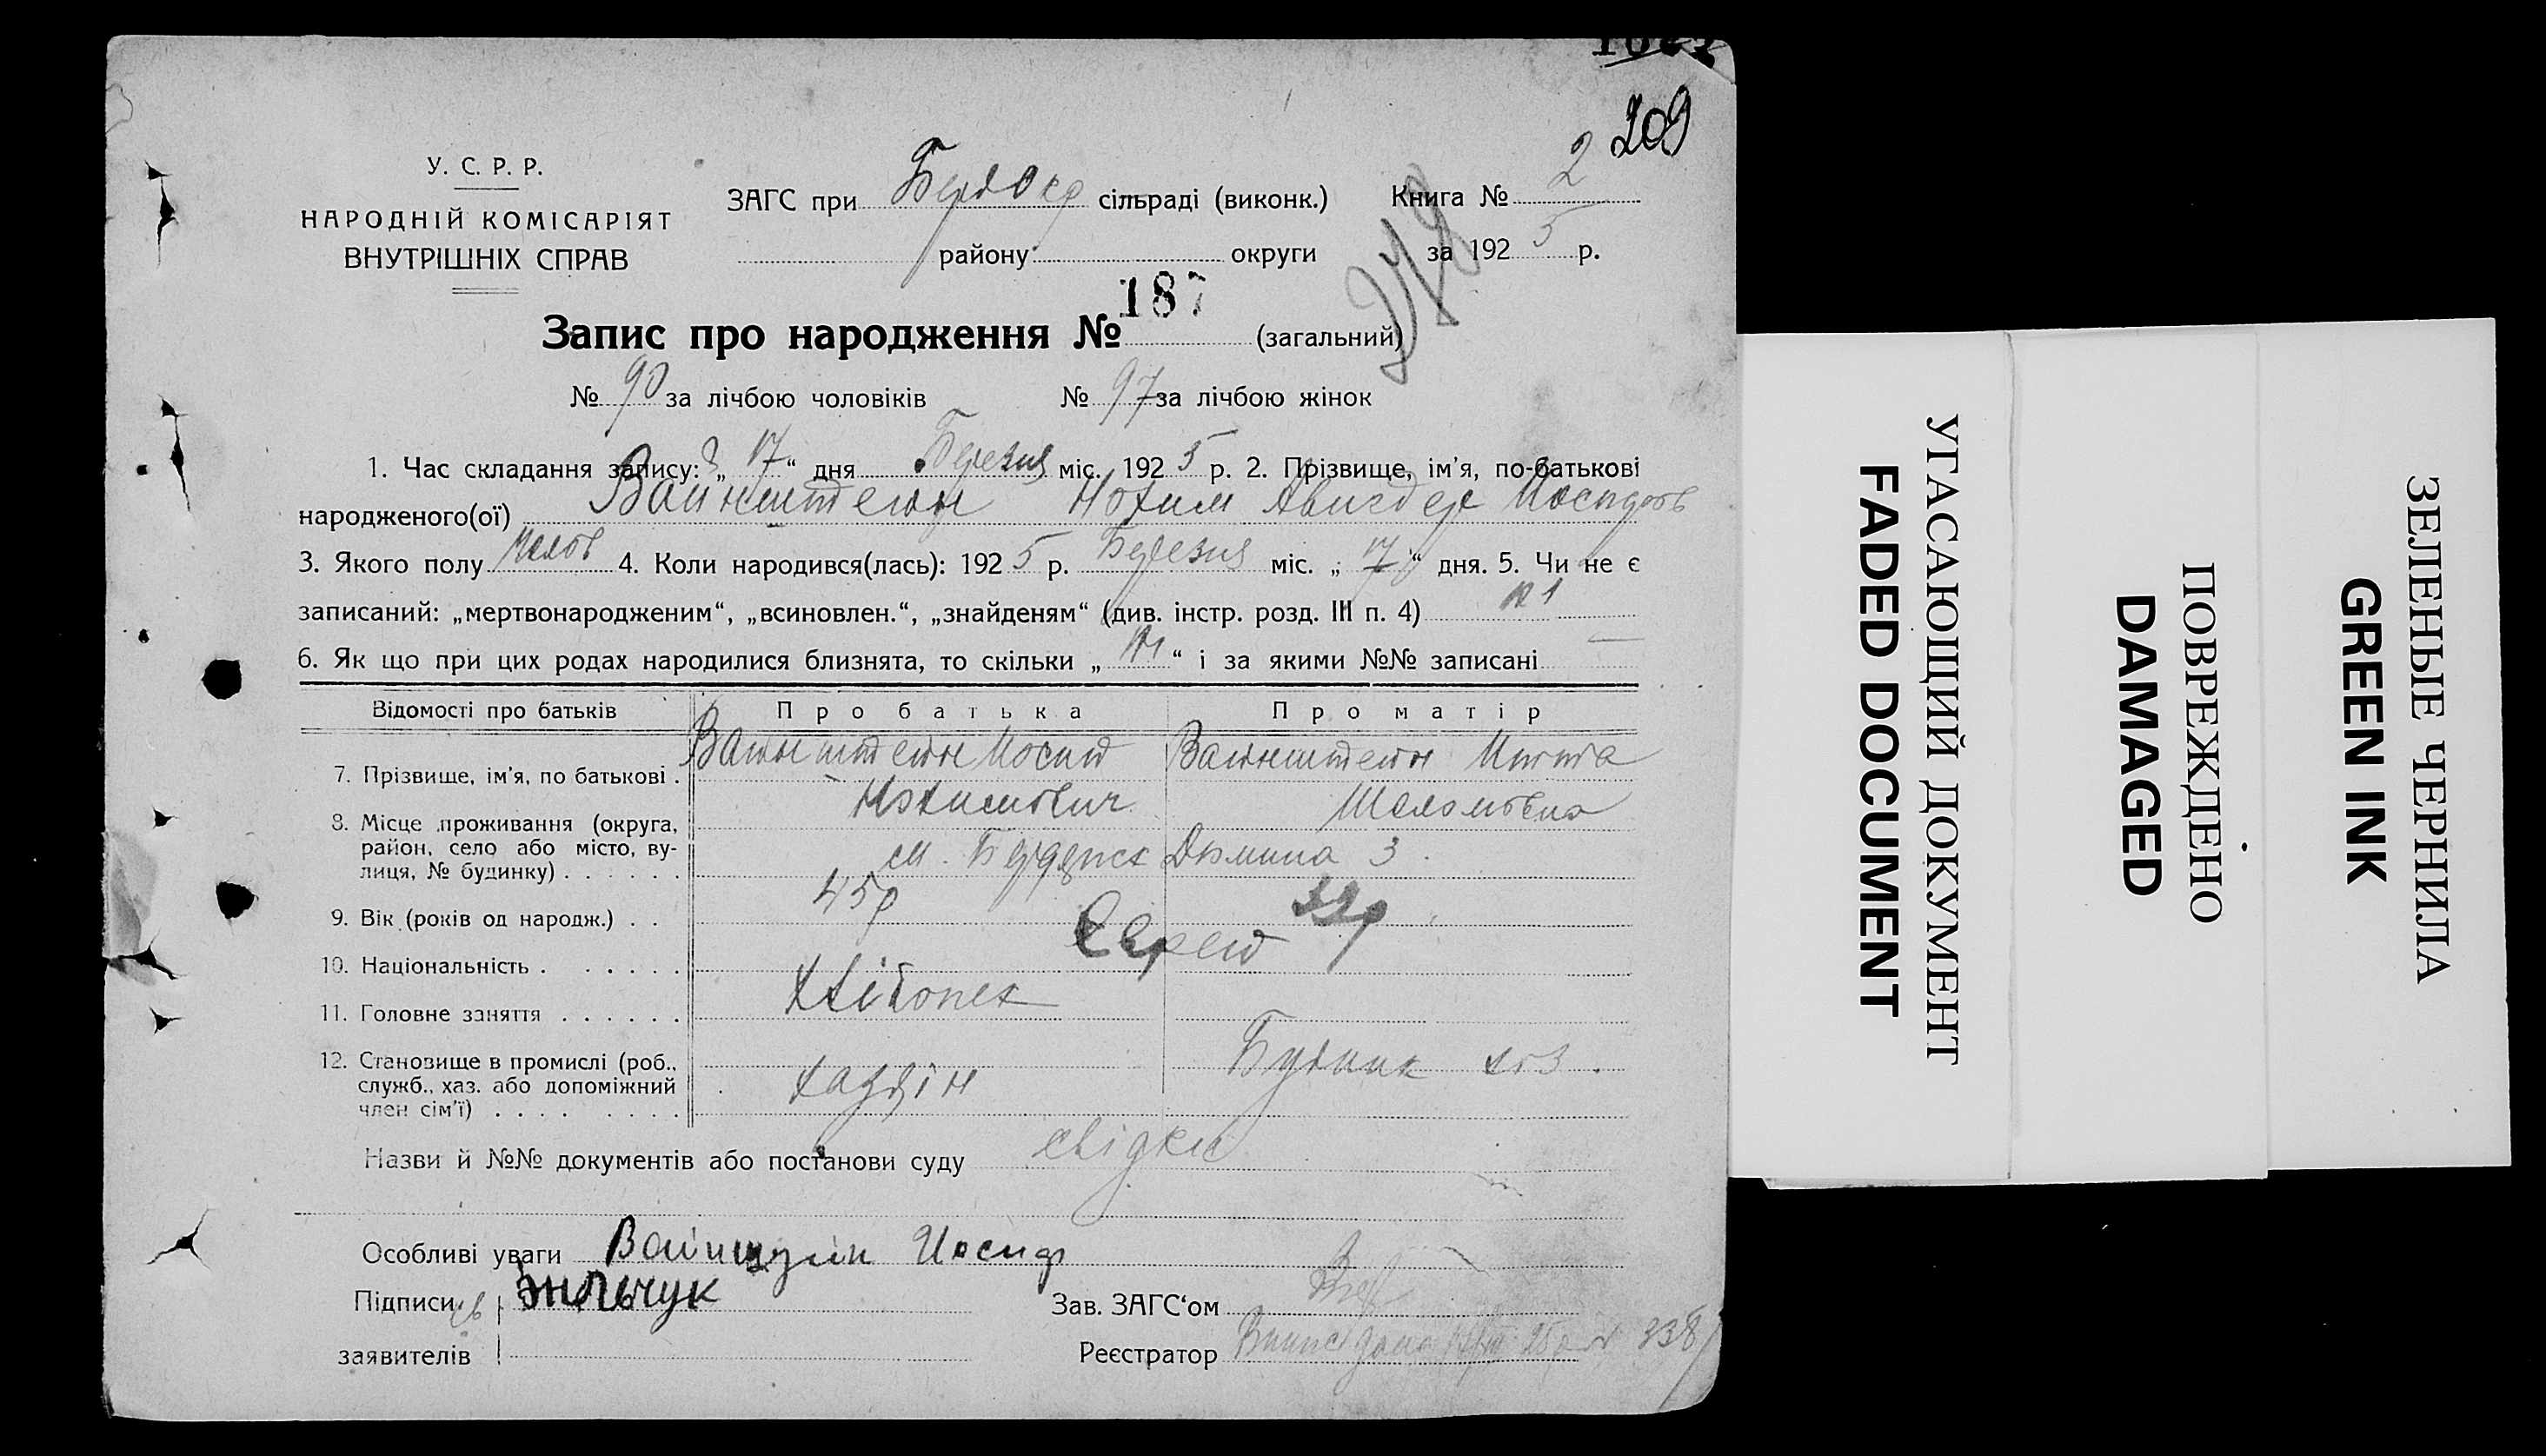 209
У. С. Р. Р.
НАРОДНІЙ КОМІСАРІЯТ
ВНУТРІШНІХ СПРАВ
ЗАГС при Бердокр сільраді (виконк.)
району округи
Книга № 2
за 192 5 р.
Запис про народження № 187 (загальний)
№ 90 за лічбою чоловіків № 97 за лічбою жінок
1. Час складання запису: „ 17 “ дня Березня міс. 192 5 р. 2. Прізвище, ім’я, по-батькові
народженого(ої) Вайнштейн Нохим Авигдер Иосипов
3. Якого полу 4. Коли народився(лась): 192 5 р. Березня міс. „ 17 “ дня. 5. Чи не є
записаний: „мертвонародженим“, „всиновлен.“, „знайденям“ (див. інстр. розд. III п. 4) ні
6. Як що при цих родах народилися близнята, то скільки „ ні “ і за якими №№ записані —
Відомості про батьків Про батька Про матір
7. Прізвище, ім’я, по батькові . Вайнштейн Иосип Нохимович Вайнштейн Шоломовна
8. Місце проживання (округа,
район, село або місто, ву-
лиця, № будинку) . . . . . . м. Бердичев 3
9. Вік (років од народж.) . . 45р
10. Національність . . . . . . Евреи
11. Головне заняття . . . . . .
12. Становище в промислі (роб.,
служб., хаз. або допоміжний
член сім’ї) . . . . . . . . хазяін
Назви й №№ документів або постанови суду свідки
Особливі уваги Иосиф
Підписи
заявителів
Зав. ЗАГС‘ом
Реєстратор 338
УГАСАЮЩИЙ ДОКУМЕНТ
FADED DOCUMENT
ПОВРЕЖДЕНО
DAMAGED
ЗЕЛЕНЫЕ ЧЕРНИЛА
GREEN INK